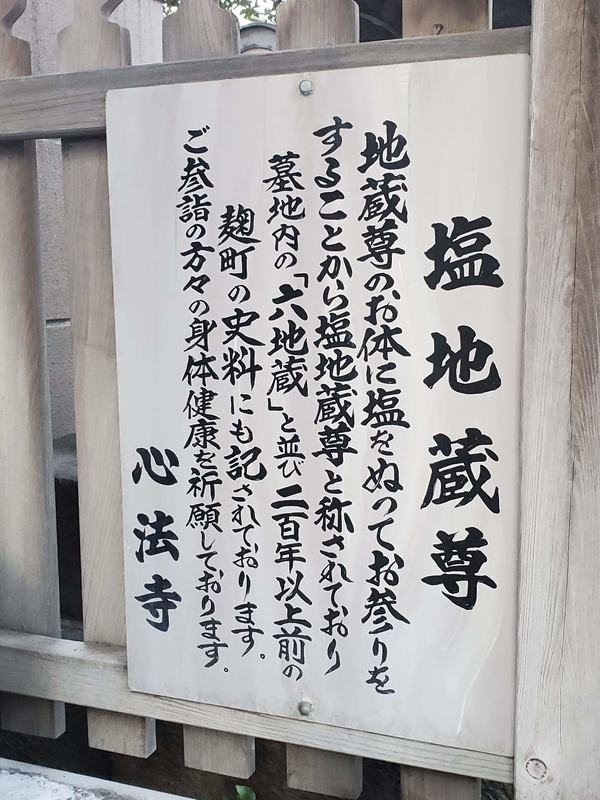 塩地蔵尊
地蔵尊のお体に塩をぬってお参りを
することから塩地蔵尊と称されており
墓地内の「六地蔵」と並び二百年以上前の
麹町の史料にも記されております。
ご参詣の方々の身体健康を祈願しております。
心法寺